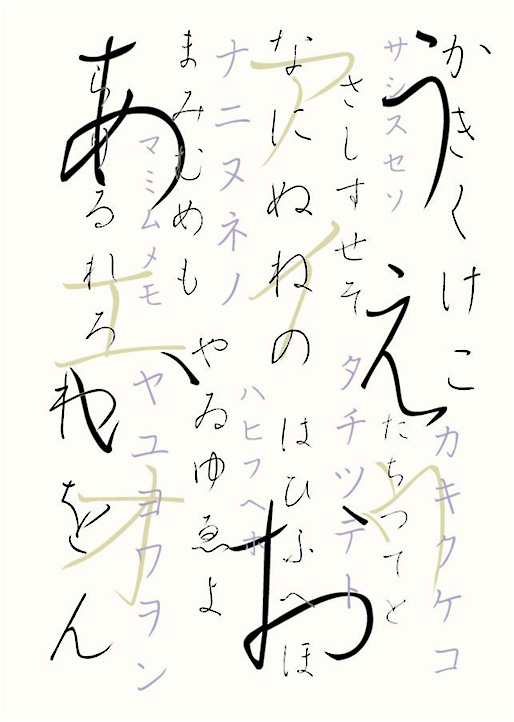 あいうえお
かきくけこ
さしすせそ
たちつてと
なにぬねの
はひふへほ
まみむめも
やゐゆゑよ
らりるれろ
わをん
アイウエオ
カキクケコ
サシスセソ
タチツテト
ナニヌネノ
ハヒフヘホ
マミムメモ
ヤユヨワヲン